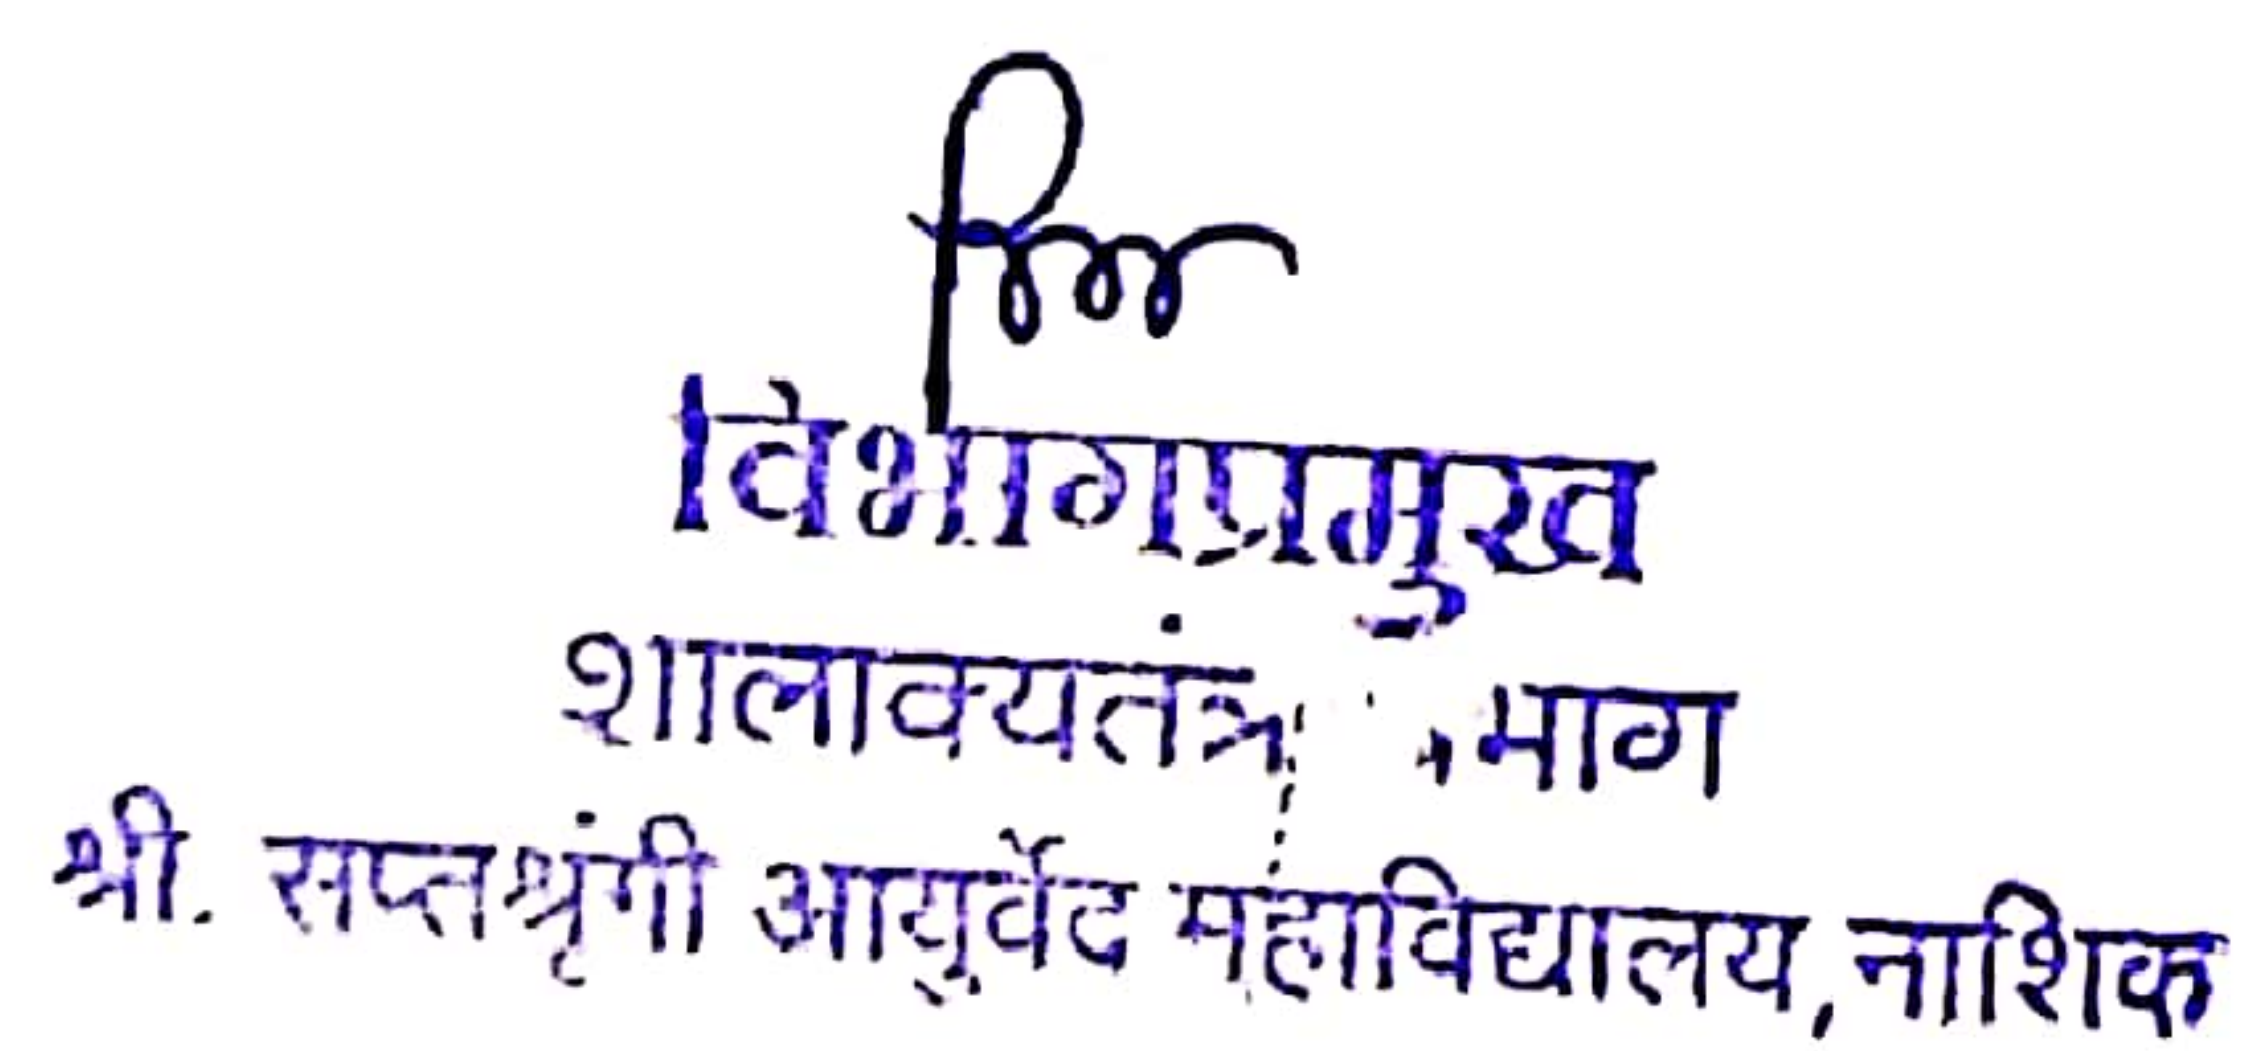 विभागप्रमुख
शालाक्यतंत्र
श्री. सप्तश्रृंगी आयुर्वेद महाविद्यालय, नाशिक